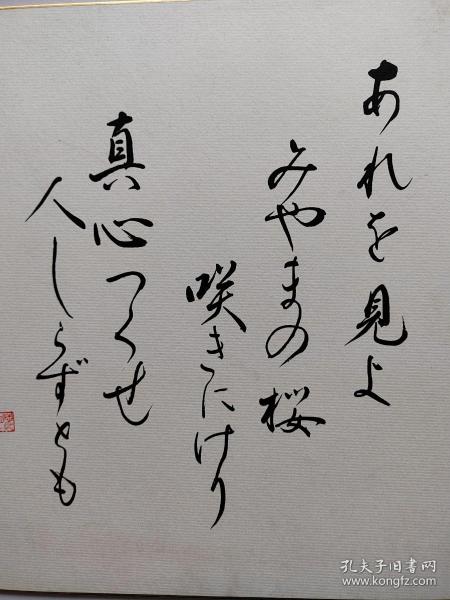 あれを見よ
みやまの桜
咲きにけり
真心つくせ
人しらずとも
孔夫子旧书网
www.kongfz.com